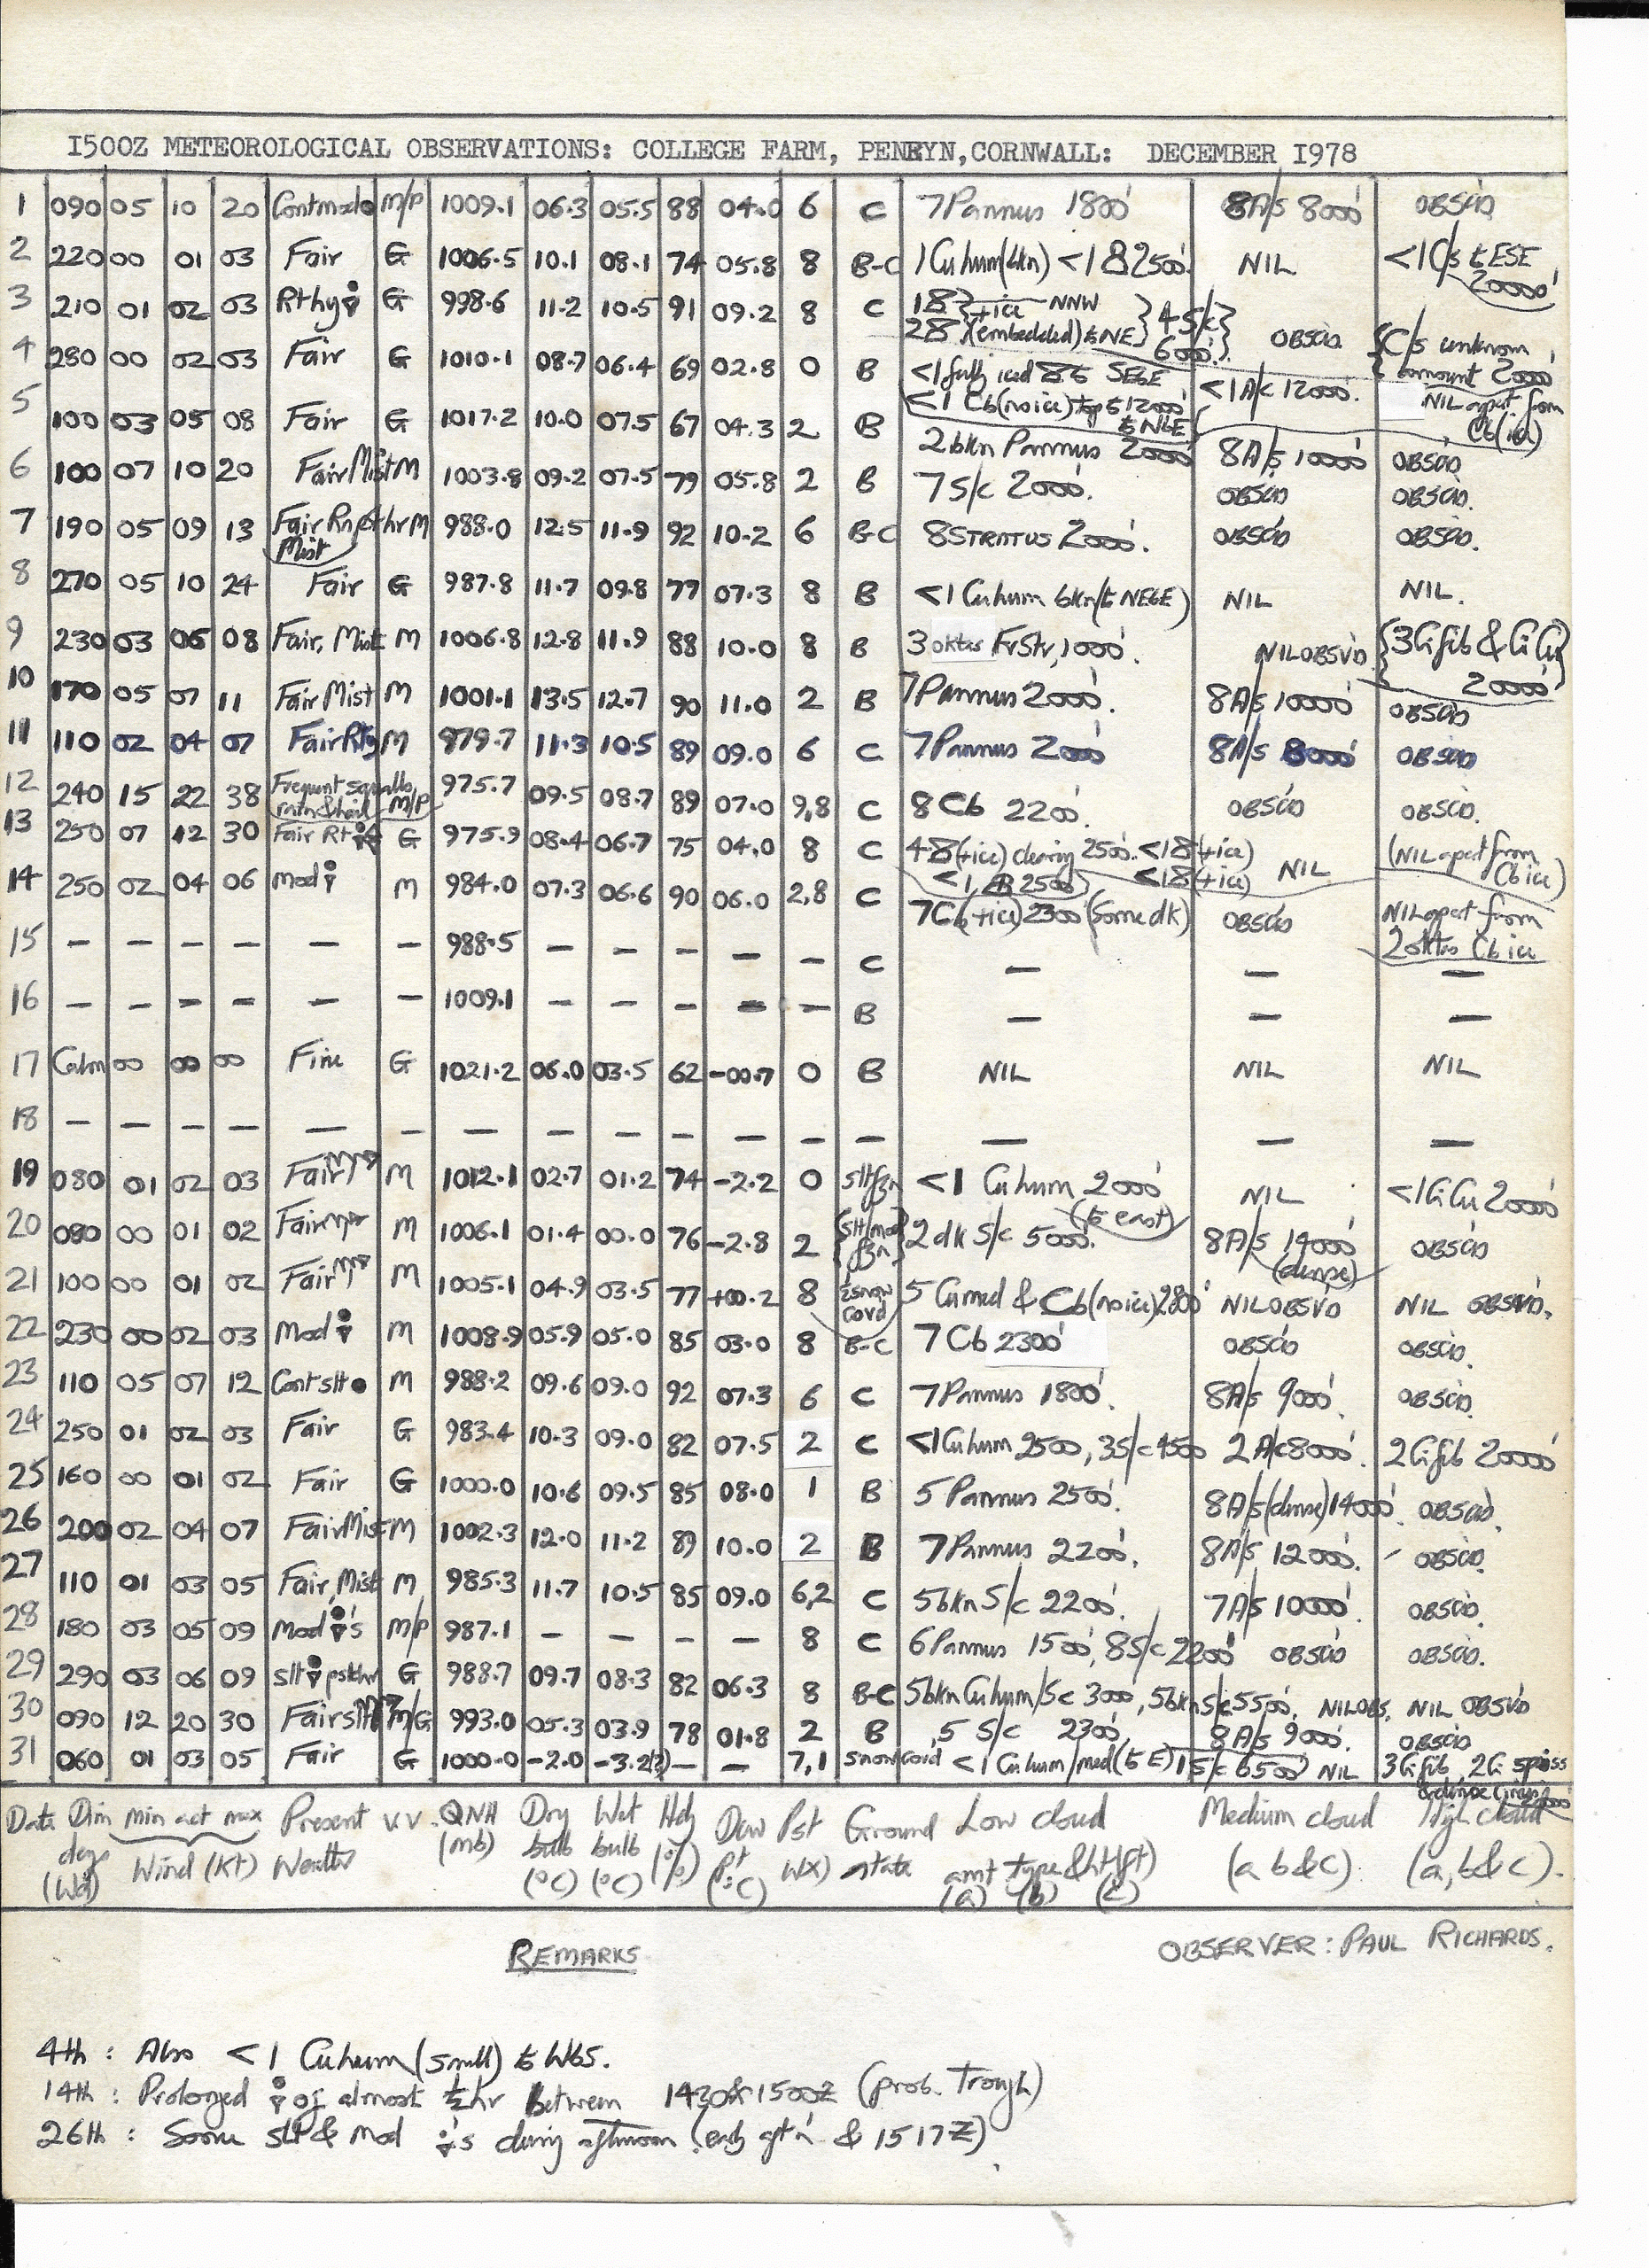 I500Z METEOROLOGICAL OBSERVATIONS: COLLEGE FARM, PENRYN,CORNWALL: DECEMBER I978
1 090 05 10 20 Contmod● M/P 1009.1 06.3 05.5 88 04.0 6 C 7 Pannus 1800' 8A/s 8000' OBSCD
2 220 00 01 03 Fair G 1006.5 10.1 08.1 74 05.8 8 B-C 1 Cuhum(bkn) <1 2500'. NIL <1C/s to ESE 20000'
3 210 01 02 03 G 998.6 11.2 10.5 91 09.2 8 C +ice NNW (embedded) to NE 4 S/c 6000'. OBSCD. C/s unknown amount 20000'
4 280 00 02 03 Fair G 1010.1 08.7 06.4 69 02.8 0 B <1 fully iced to SEBE <1 Cb(no ice) top to 12000' to NBE <1A/c 12000'. NIL apart from Cb(ice)
5 100 03 05 08 Fair G 1017.2 10.0 07.5 67 04.3 2 B 2 bkn Pannus 2000' 8A/s 10000' OBSCD
6 100 07 10 20 Fair Mist M 1003.8 09.2 07.5 79 05.8 2 B 7 S/c 2000'. OBSCD OBSCD.
7 190 05 09 13 Fair Mist M 988.0 12.5 11.9 92 10.2 6 B-C 8 STRATUS 2000'. OBSCD OBSCD.
8 270 05 10 24 Fair G 987.8 11.7 09.8 77 07.3 8 B <1 Cuhum bkn(to NEBE) NIL NIL.
9 230 03 06 08 Fair, Mist M 1006.8 12.8 11.9 88 10.0 8 B 3 oktas FrStr, 1000'. NIL OBSVD. 3Cifib & CiCu 20000'
10 170 05 07 11 Fair Mist M 1001.1 13.5 12.7 90 11.0 2 B 7 Pannus 2000'. 8A/s 10000' OBSCD
11 110 02 04 07 Fair M 979.7 11.3 10.5 89 09.0 6 C 7 Pannus 2000' 8A/s 8000' OBSCD
12 240 15 22 38 Frequent squalls rain & hail M/P 975.7 09.5 08.7 89 07.0 9,8 C 8 Cb 2200'. OBSCD OBSCD.
13 250 07 12 30 Fair G 975.9 08.4 06.7 75 04.0 8 C (+ice) clearing 2500'. (+ice) <1 2500' (+ice) NIL (NIL apart from Cb ice)
14 250 02 04 06 Mod M 984.0 07.3 06.6 90 06.0 2,8 C 7Cb(+ice) 2300' (some dk) OBSCD NIL apart from 2 oktas Cb ice
15 — — — — — — 988.5 — — — — — C — — —
16 — — — — — — 1009.1 — — — — — B — — —
17 Calm 00 00 00 Fine G 1021.2 06.0 03.5 62 -00.7 0 B NIL NIL NIL
18 — — — — — — — — — — — — — — — —
19 080 01 02 03 Fair M 1012.1 02.7 01.2 74 -2.2 0 slt fzn <1 Cuhum 2000' (to east) NIL <1CiCu 20000'
20 080 00 01 02 Fair M 1006.1 01.4 00.0 76 -2.8 2 slt/mod fzn 2 dk S/c 5000'. 8A/s 14000' (dense) OBSCD
21 100 00 01 02 Fair M 1005.1 04.9 03.5 77 +00.2 8 ½ snow covd 5 Cumed & Cb(no ice)2800' NIL OBSVD NIL OBSVD.
22 230 00 02 03 Mod M 1008.9 05.9 05.0 85 03.0 8 B-C 7 Cb 2300' OBSCD OBSCD.
23 110 05 07 12 Cont slt ● M 988.2 09.6 09.0 92 07.3 6 C 7 Pannus 1800'. 8A/s 9000'. OBSCD.
24 250 01 02 03 Fair G 983.4 10.3 09.0 82 07.5 2 C <1Cuhum 2500, 3S/c 4500 2 A/c 8000'. 2Cifib 20000'
25 160 00 01 02 Fair G 1000.0 10.6 09.5 85 08.0 1 B 5 Pannus 2500'. 8A/s(dense)14000'. OBSCD.
26 200 02 04 07 Fair Mist M 1002.3 12.0 11.2 89 10.0 2 B 7 Pannus 2200'. 8A/s 12000'. OBSCD.
27 110 01 03 05 Fair, Mist M 985.3 11.7 10.5 85 09.0 6,2 C 5bkn S/c 2200'. 7A/s 10000'. OBSCD.
28 180 03 05 09 Mod 's M/P 987.1 — — — — 8 C 6 Pannus 1500', 8S/c 2200' OBSCD OBSCD.
29 290 03 06 09 slt G 988.7 09.7 08.3 82 06.3 8 B-C 5bkn Cuhum/Sc 3000', 5bkn S/c 5500'. NIL OBS. NIL OBSVD
30 090 12 20 30 Fair M/G 993.0 05.3 03.9 78 01.8 2 B 5 S/c 2300' 8A/s 9000'. OBSCD
31 060 01 03 05 Fair G 1000.0 -2.0 -3.2(?) — — 7,1 Snow covd <1 Cuhum/med (to E) 1 S/c 6500' NIL 3Cifib, 2Ci spiss
Date Dirn degs (Wd) min act max Wind (Kt) Present Weather V.V. QNH (mb) Dry bulb (°C) Wet bulb (°C) Hdy (%) Dew Pt (°C) Pst WX) Ground state Low cloud amt type & ht(ft) (a) (b) (c) Medium cloud (a b & c). High cloud (a, b & c).
REMARKS
OBSERVER: PAUL RICHARDS.
4th : Also <1 Cuhum (small) to WbS.
14th : Prolonged of almost ½hr between 1430&1500Z (prob. Trough)
26th : Some slt & Mod 's during afternoon (early aft'n & 1517Z).